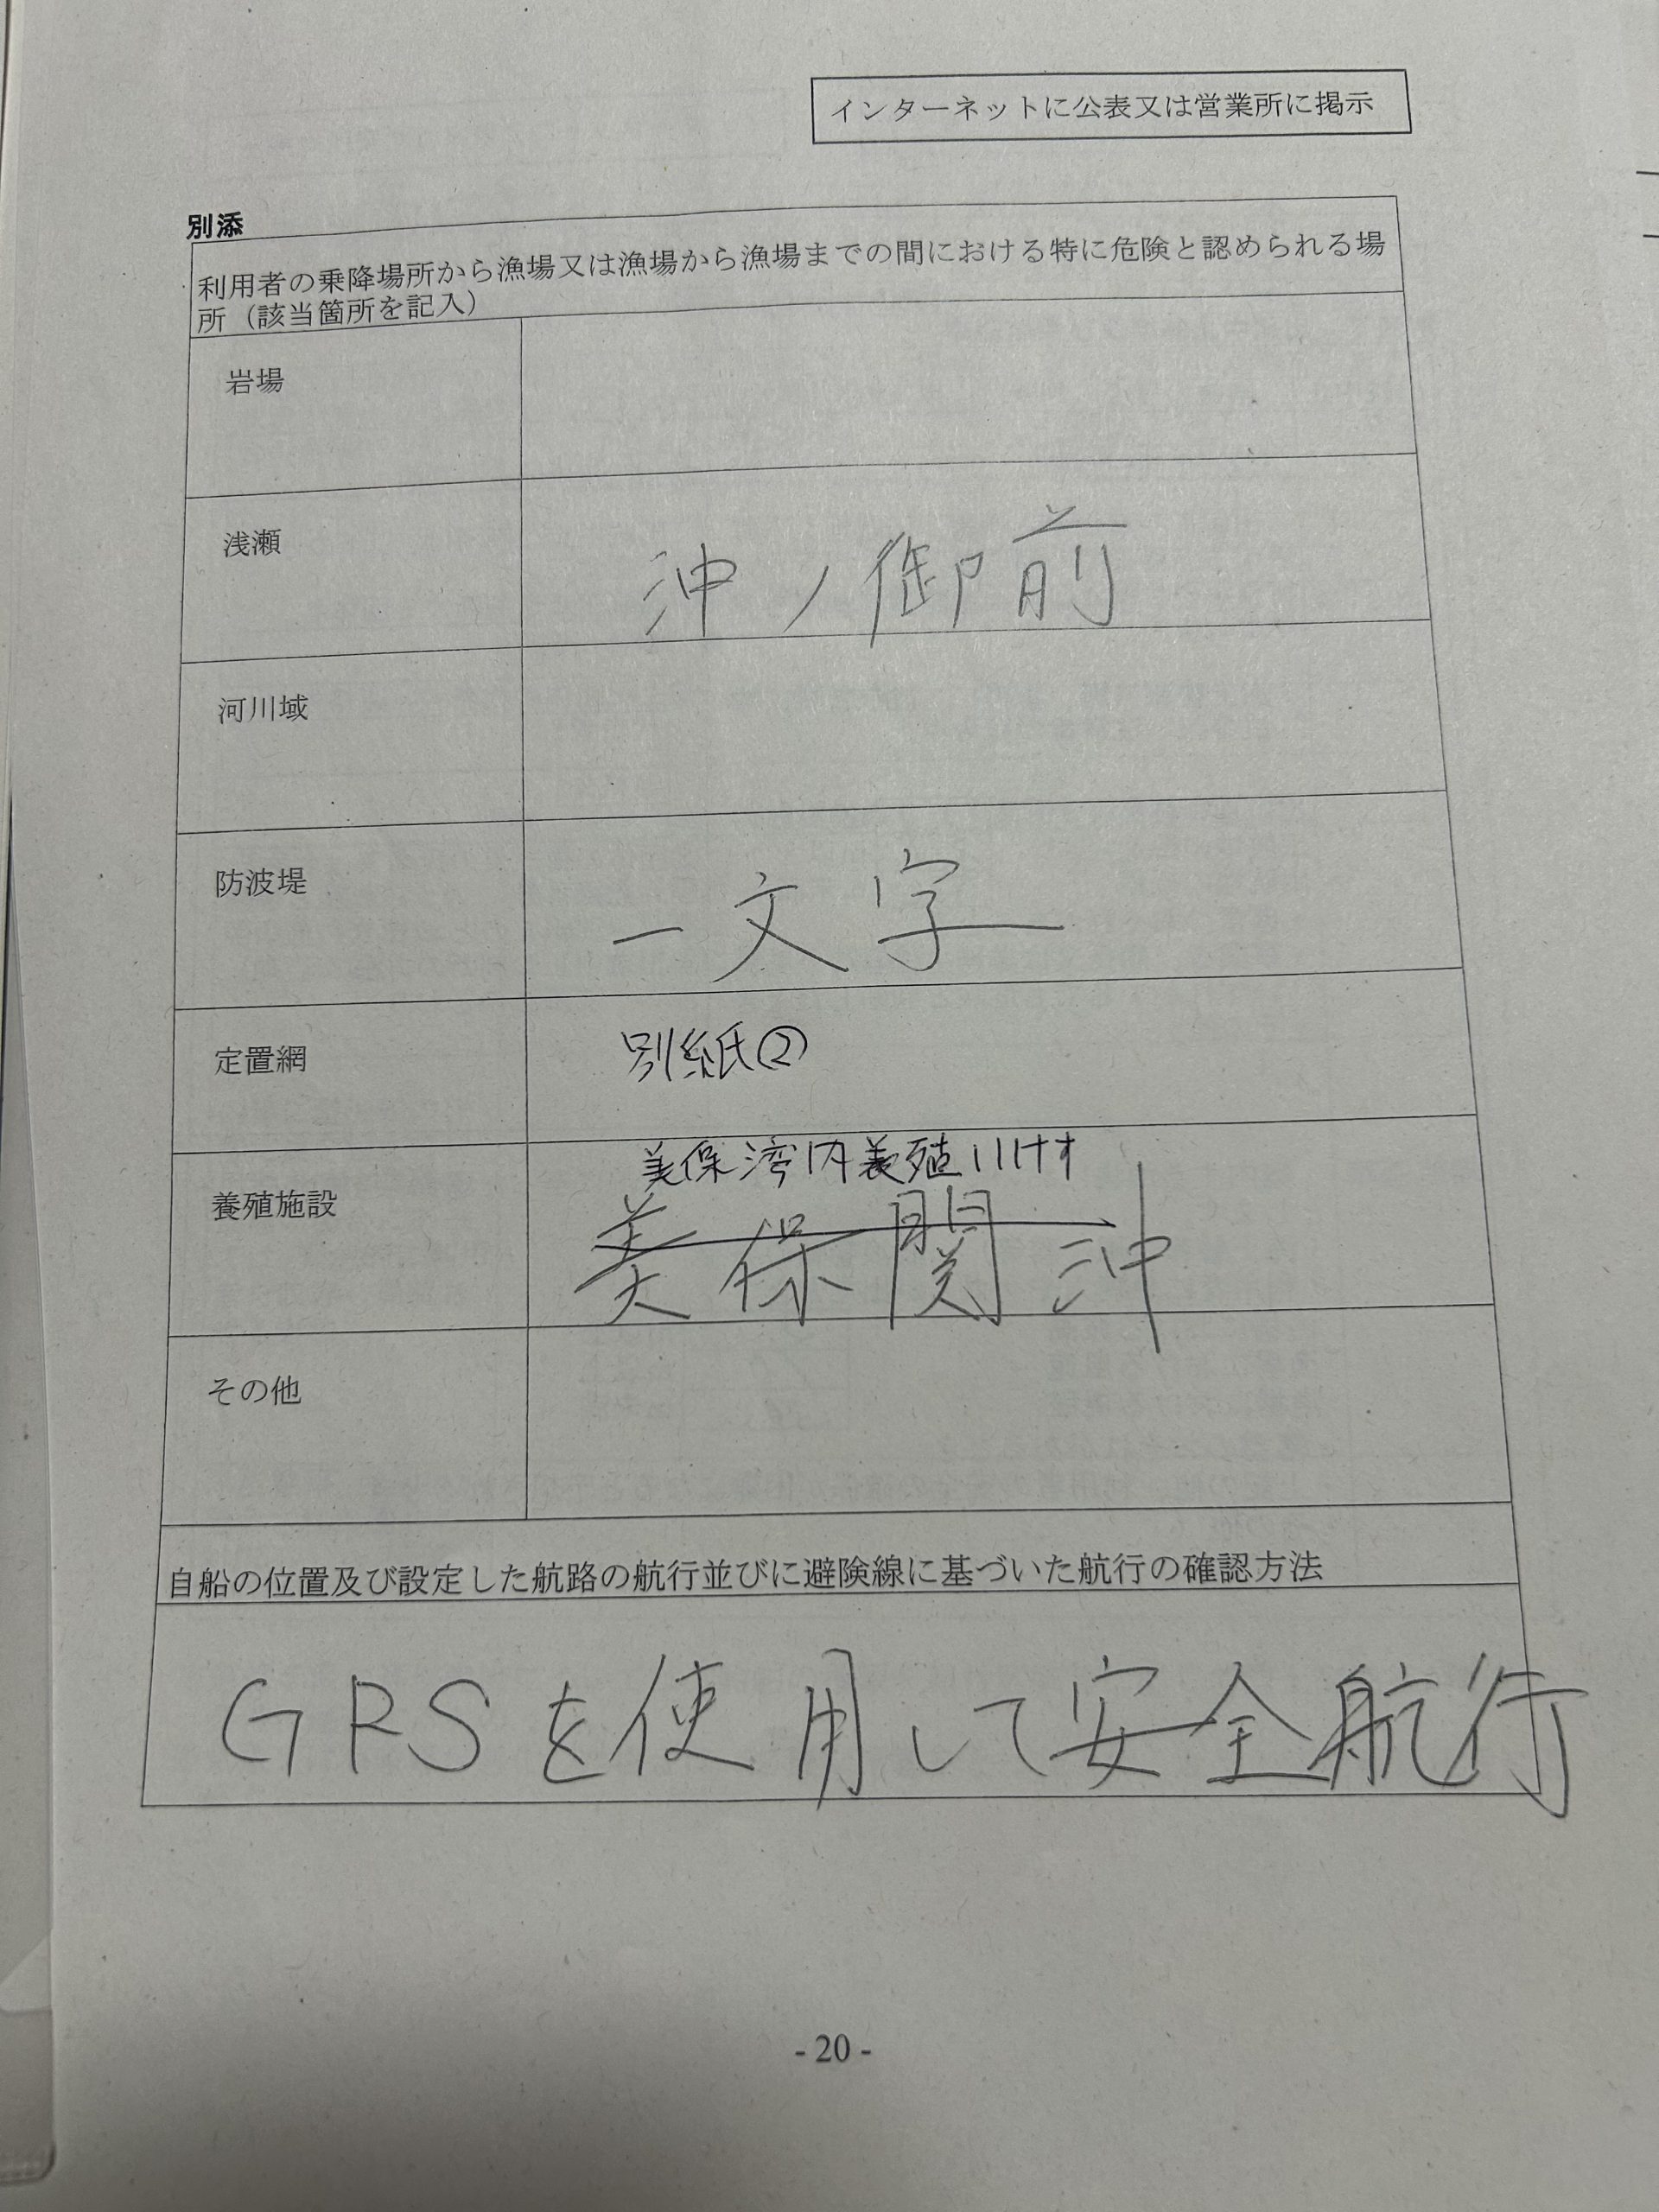 インターネットに公表又は営業所に掲示
別添
利用者の乗降場所から漁場又は漁場から漁場までの間における特に危険と認められる場
所（該当箇所を記入）
岩場
浅瀬
沖ノ御前
河川域
防波堤
一文字
定置網
別紙②
養殖施設
美保湾内養殖いけす
美保関沖
その他
自船の位置及び設定した航路の航行並びに避険線に基づいた航行の確認方法
GPSを使用して安全航行
- 20 -